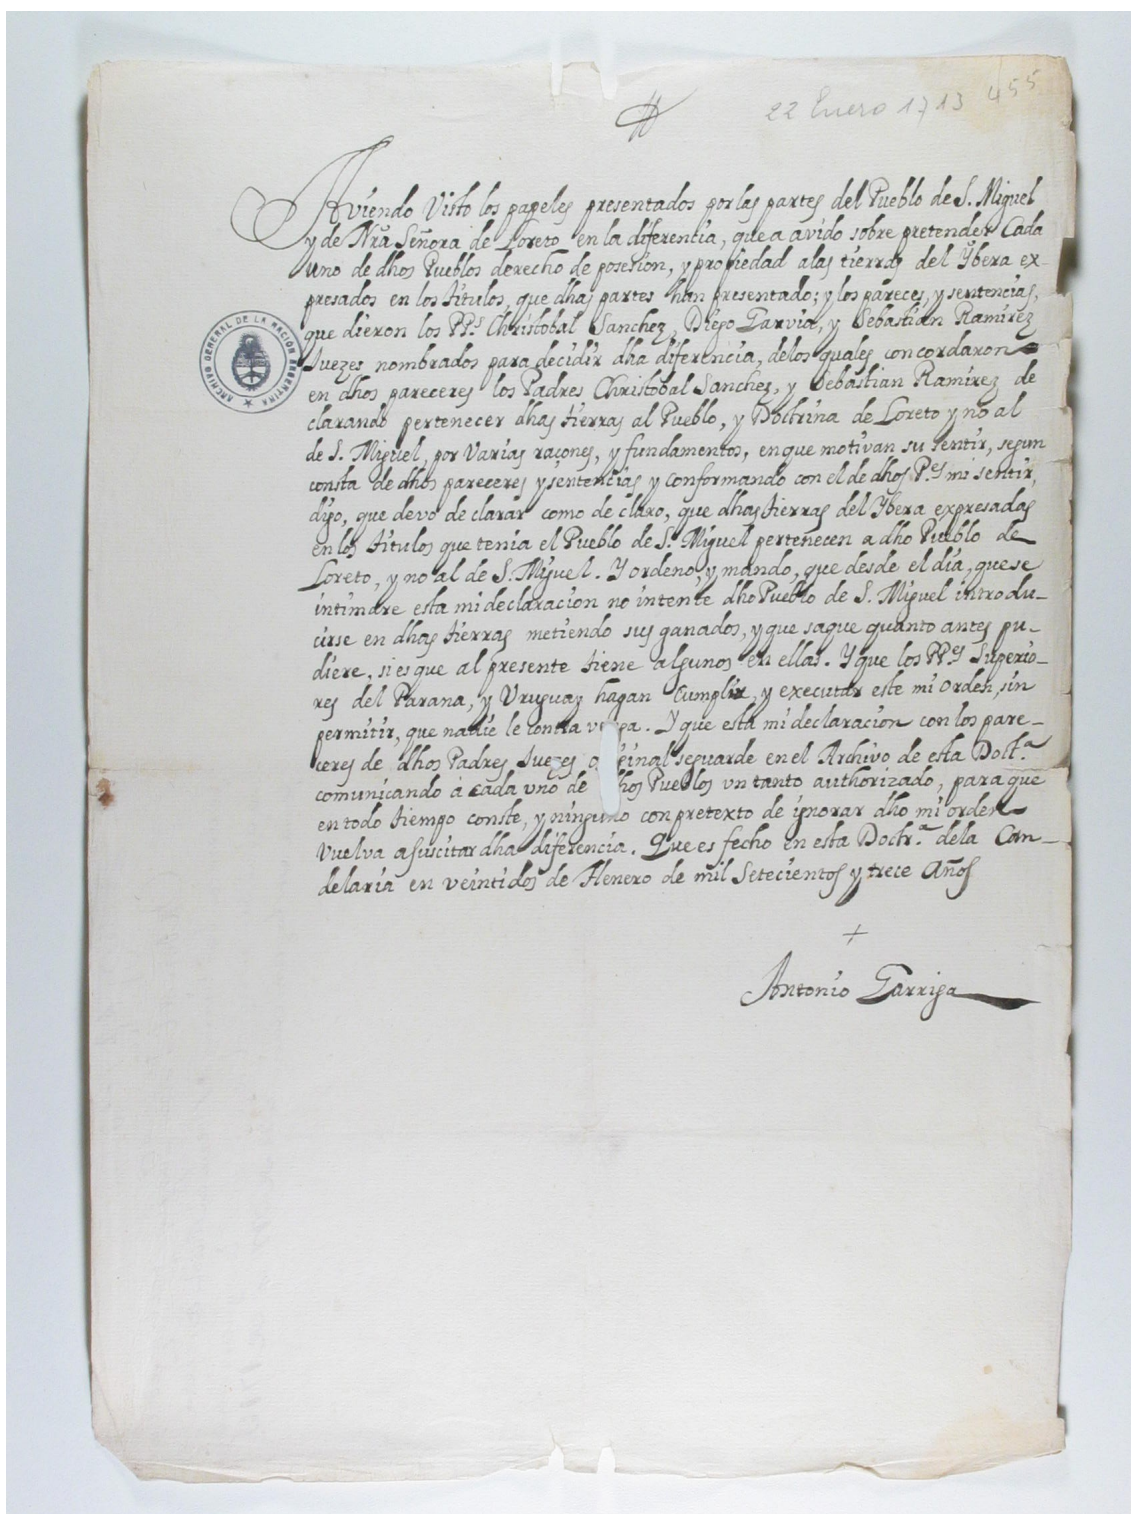 22 Enero 1713 455
Aviendo Visto los papeles presentados por las partes del Pueblo de S. Miguel
y de Nrã Señora de Loreto en la diferencia, que a avido sobre pretender Cada
uno de dhos Pueblos derecho de posesion, y propiedad a las tierras del Ybera ex-
presados en los títulos, que dhas partes han presentado; y los pareces, y sentencias,
que dieron los PP.s Christobal Sanchez, Diego Garvia, y Sebastian Ramirez
Juezes nombrados para decidir dha diferencia, de los quales concordaron
en dhos pareceres los Padres Christobal Sanchez, y Sebastian Ramirez de
clarando pertenecer dhas tierras al Pueblo, y Doctrina de Loreto y no al
de S. Miguel, por Varias raçones, y fundamentos, en que motivan su sentir, segun
consta de dhos pareceres y sentencias y conformando con el de dhos P.es mi sentir,
digo, que devo de clarar como de claro, que dhas tierras del Ybera expresadas
en los títulos que tenia el Pueblo de S. Miguel pertenecen a dho Pueblo de
Loreto, y no al de S. Miguel. Y ordeno, y mando, que desde el día, que se
intimare esta mi declaracion no intente dho Pueblo de S. Miguel introdu-
cirse en dhas tierras metiendo sus ganados, y que saque quanto antes pu-
diere, si es que al presente tiene algunos en ellas. Y que los PP.es Superio-
res del Parana, y Uruguay hagan cumplir, y executar este mi orden, sin
permitir, que nadie le contra venga. Y que esta mi declaracion con los pare-
ceres de dhos Padres Juezes original se guarde en el Archivo de esta Doct.a
comunicando à cada uno de dhos Pueblos un tanto authorizado, para que
en todo tiempo conste, y ninguno con pretexto de ignorar dho mi orden
Vuelva a suscitar dha diferencia. Que es fecho en esta Doctr.a de la Can-
delaria en veintidos de Henero de mil Setecientos y trece Años
+
Antonio Garriga
ARCHIVO GENERAL DE LA NACIÓN ARGENTINA